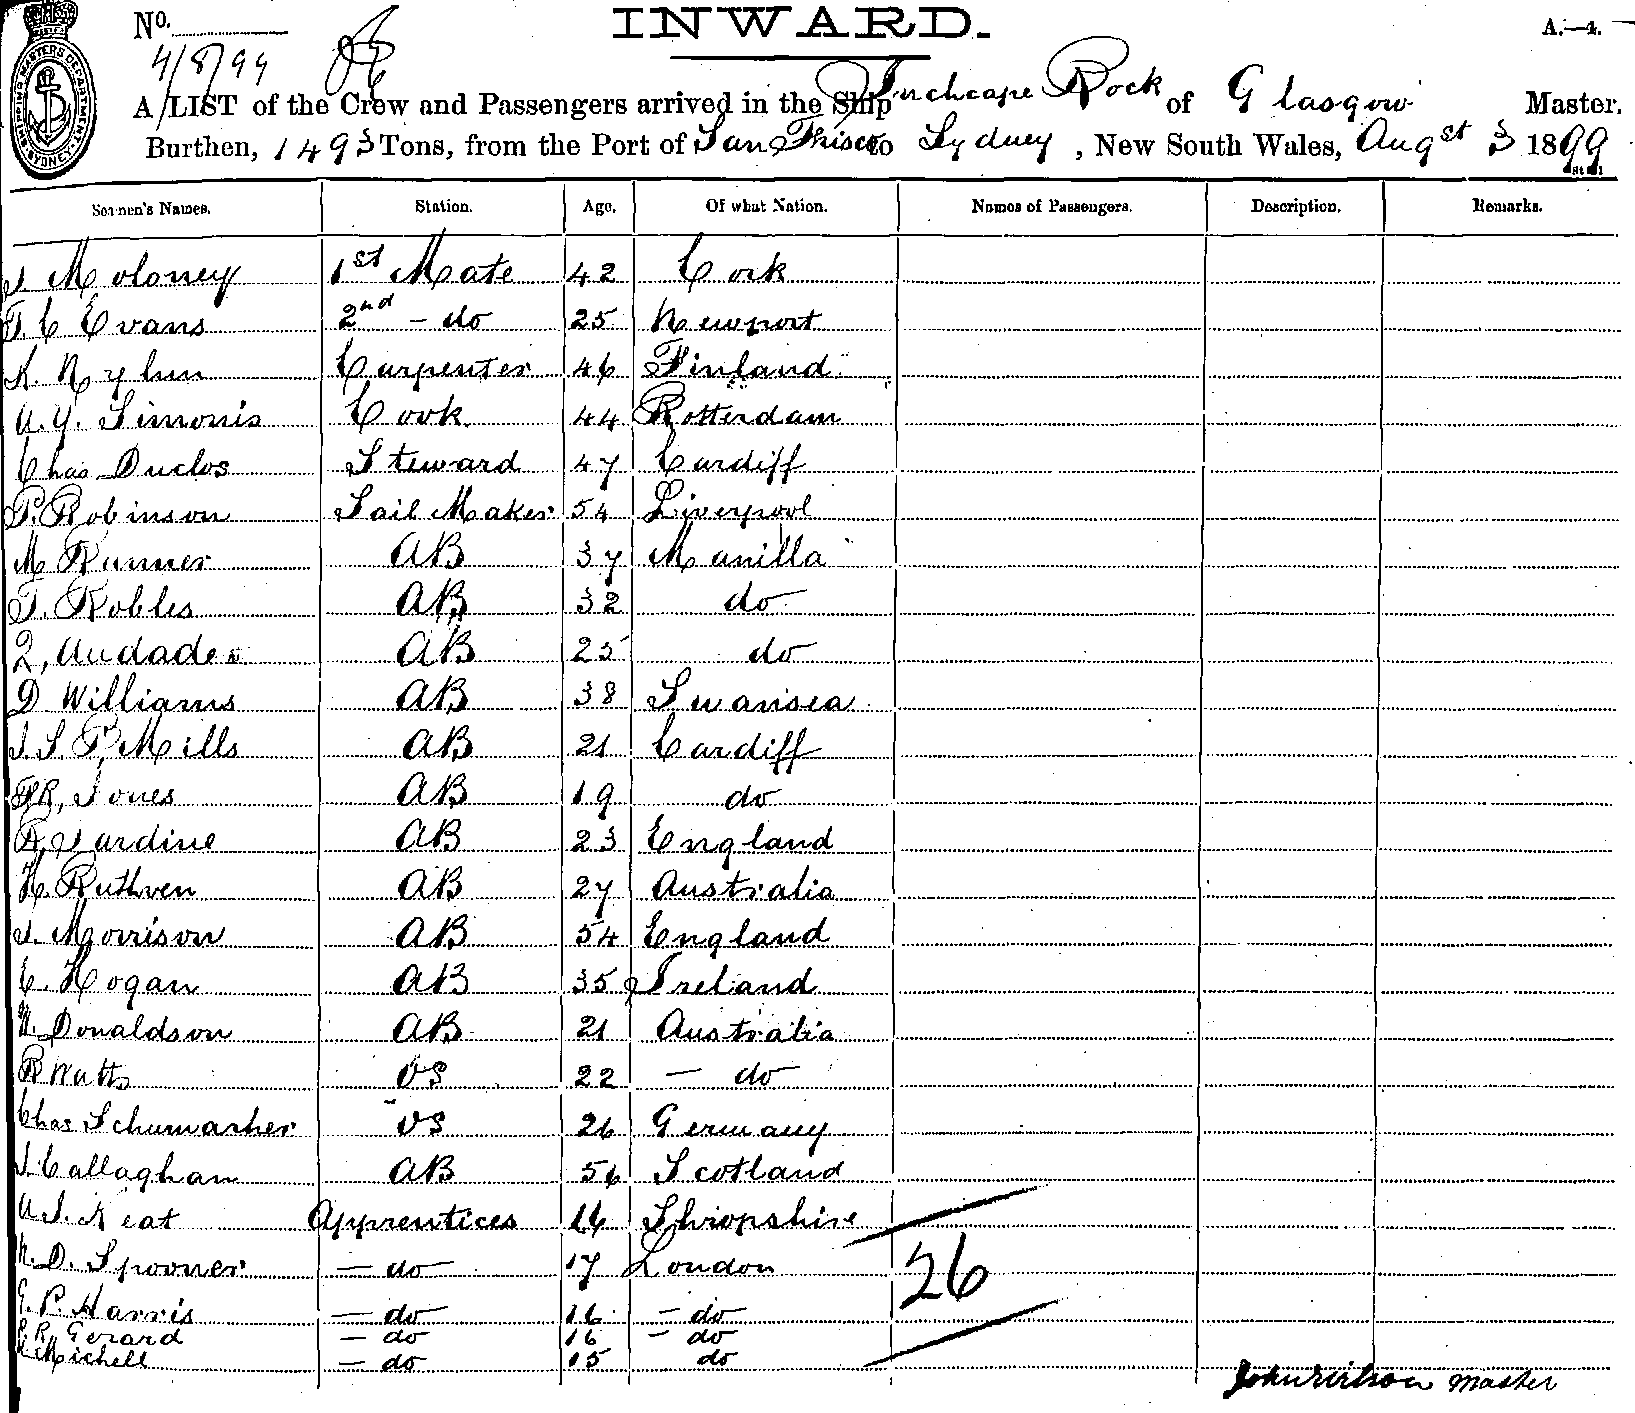 No.
INWARD.
A.—4.
4/8/99
A LIST of the Crew and Passengers arrived in the Ship Inchcape Rock of Glasgow Master,
Burthen, 1493 Tons, from the Port of San Frisco to Sydney, New South Wales, Augst 3 1899
Seamen's Names. Station. Age. Of what Nation. Names of Passengers. Description. Remarks.
J Moloney 1st Mate 42 Cork
T. C Evans 2nd - do 25 Newport
K. Nylun Carpenter 46 Finland
A. Y. Simonis Cook 44 Rotterdam
Chas Duclos Steward 47 Cardiff
P. Robinson Sail Maker 54 Liverpool
M Runner AB 37 Manilla
T. Robles AB 32 do
Q, Audades AB 25 do
D Williams AB 38 Swansea
J. S. P. Mills AB 21 Cardiff
R, Jones AB 19 do
Jardine AB 23 England
H. Ruthven AB 27 Australia
J. Morrison AB 54 England
C. Hogan AB 35 Ireland
Donaldson AB 21 Australia
R Watts OS 22 — do
Chas Schumacher OS 26 Germany
J. Callaghan AB 56 Scotland
A. J. Keat Apprentices 16 Shropshire
D. Spooner — do 17 London
26
G. P. Harris — do 16 — do
R. Gerard — do 16 — do
Michell — do 15 do
John Wilson Master